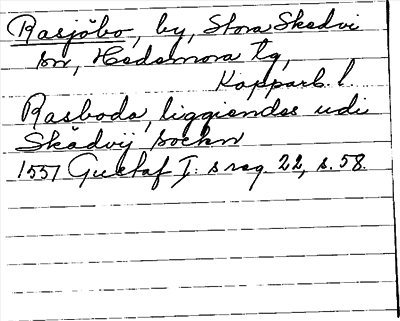 Rasjöbo, by, Stora Skedvi
sn, Hedemora tg,
Kopparb. l.
Rasboda, liggiendes udi
Skädvij sochn
1557 Gustaf I: s reg. 22, s. 58.